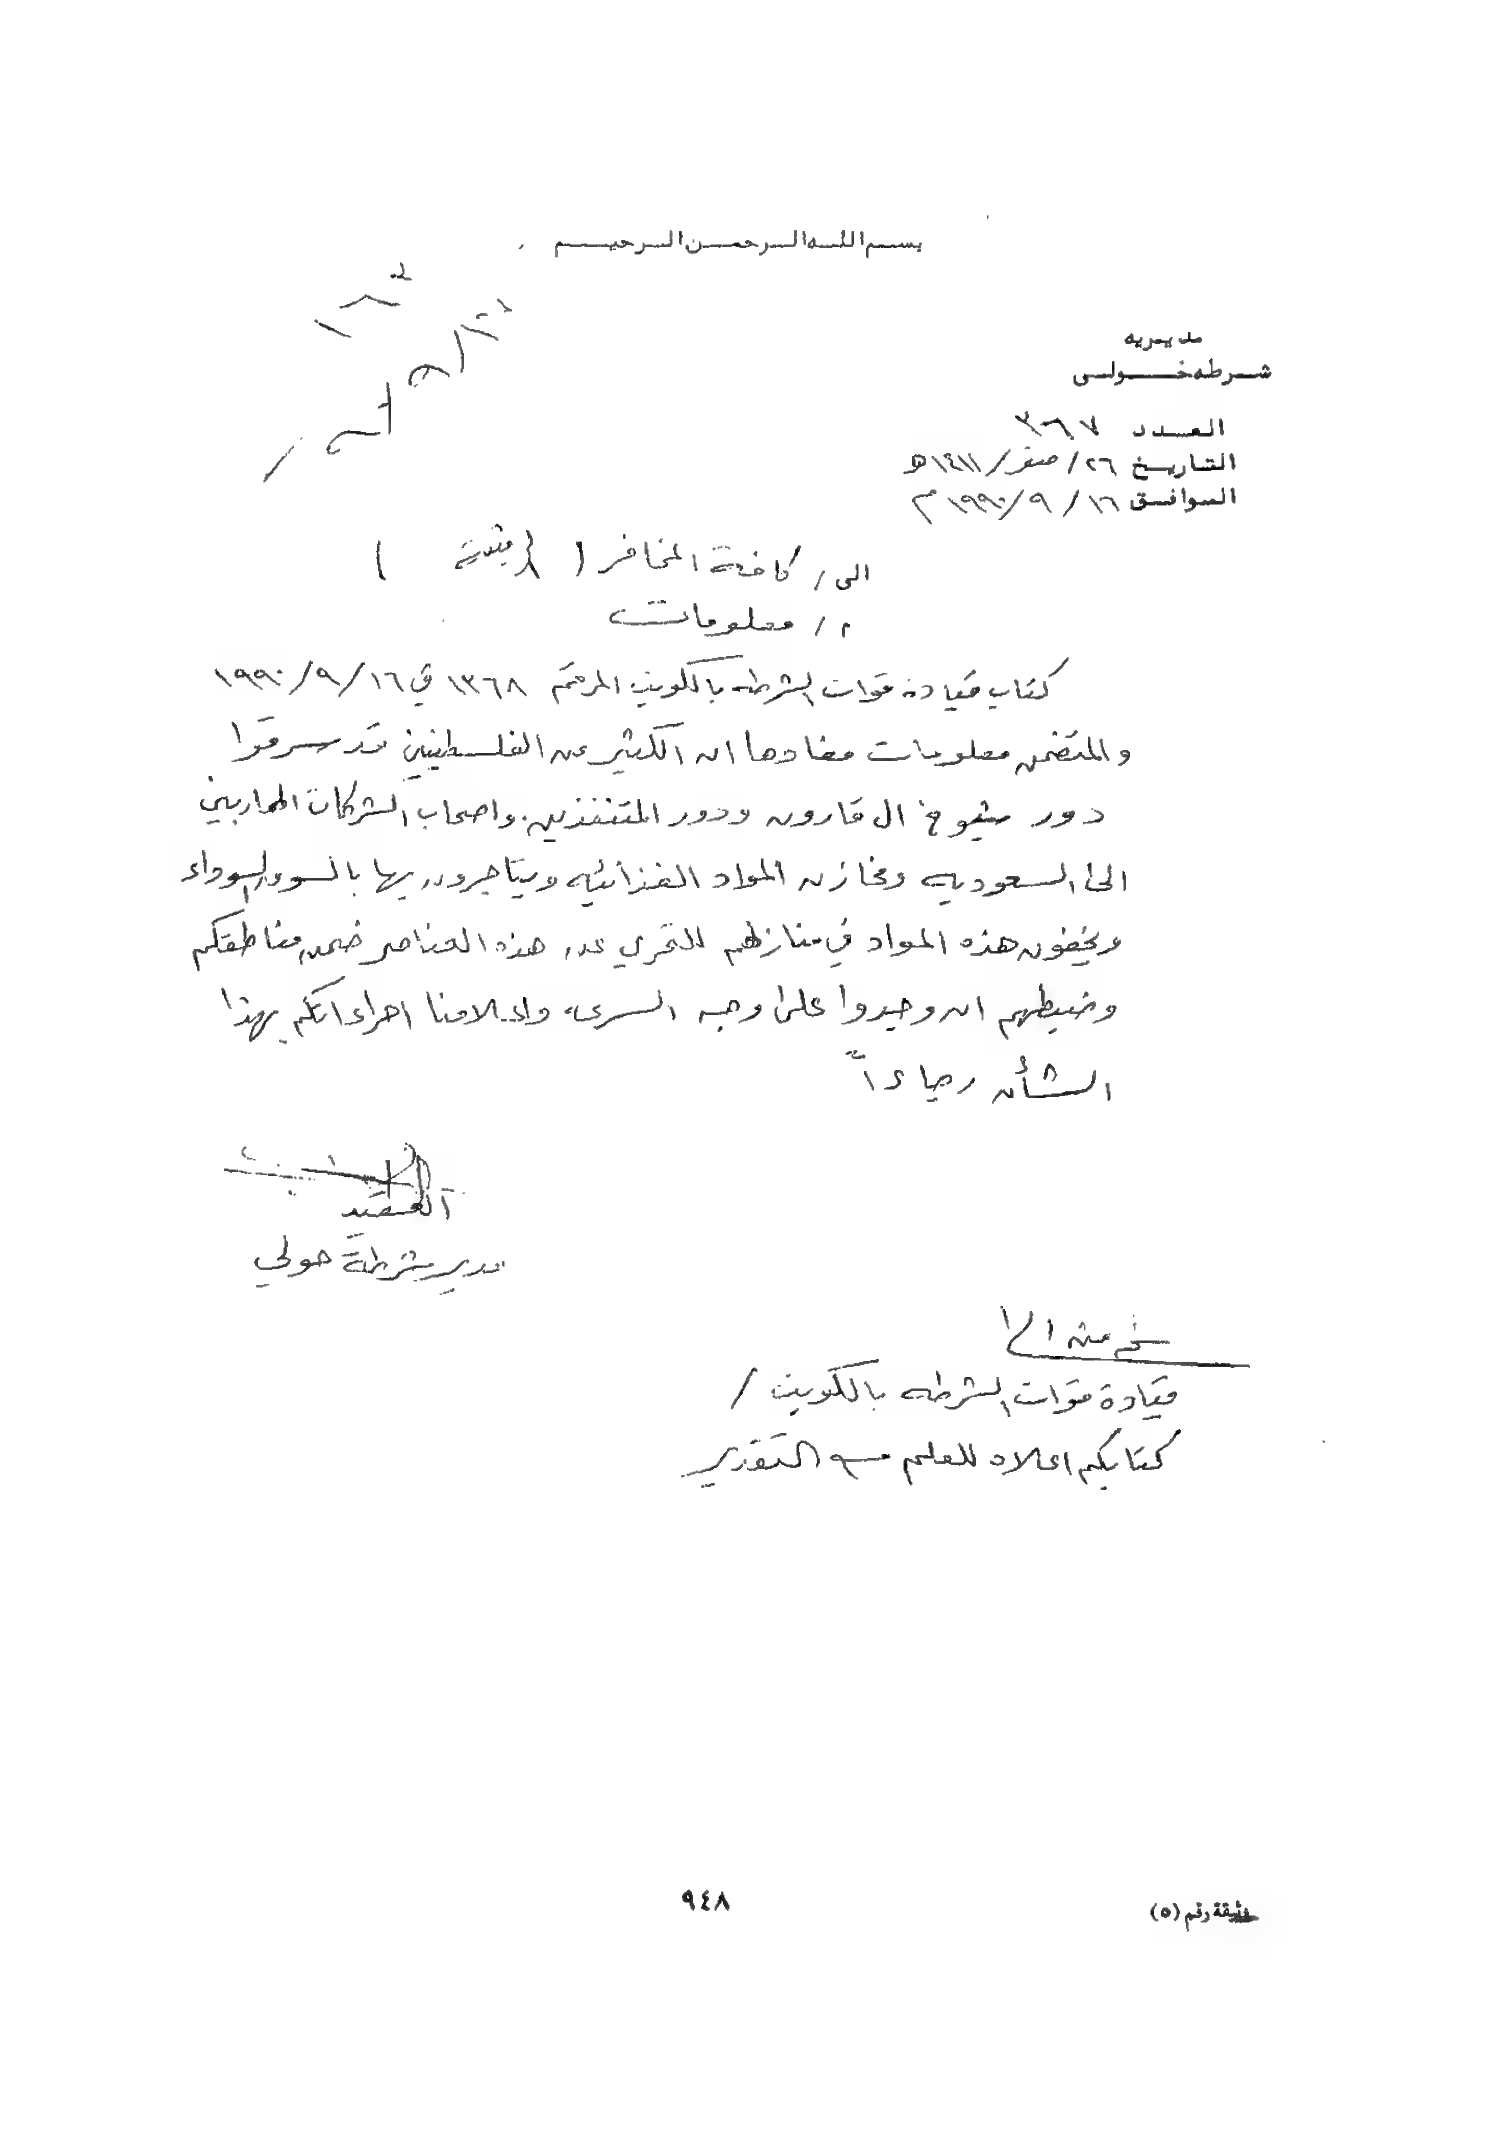 بسم الله الرحمن الرحيم
مديريه
شرطه حولي
العدد ٣٦٧
التاريخ ٢٦/ صفر/ ١٤١١هـ
الموافق ١٦/ ٩/ ١٩٩٠م
الى/ كافة المخافر ( )
م/ معلومات
كتاب قيادة قوات الشرطه بالكويت المرقم ١٣٦٨ في ١٦/ ٩/ ١٩٩٠
والمتضمن معلومات مفادها ان الكثير من الفلسطينين قد سرقوا
دور شيوخ ال قارون ودور المتنفذين واصحاب الشركات الهاربين
الى السعوديه ومخازن المواد الغذائيه ويتاجرون بها بالسوق السوداء
ويخفون هذه المواد في منازلهم للتحري عن هذه العناصر ضمن مناطقكم
وضبطهم ان وجدوا على وجه السرعه واعلامنا اجراءاتكم بهذا
الشأن رجاءاً
العقيد
مدير شرطة حولي
نسخه منه الى/
قيادة قوات الشرطه بالكويت /
كتابكم اعلاه للعلم مع التقدير
٩٤٨
وثيقة رقم (٥)